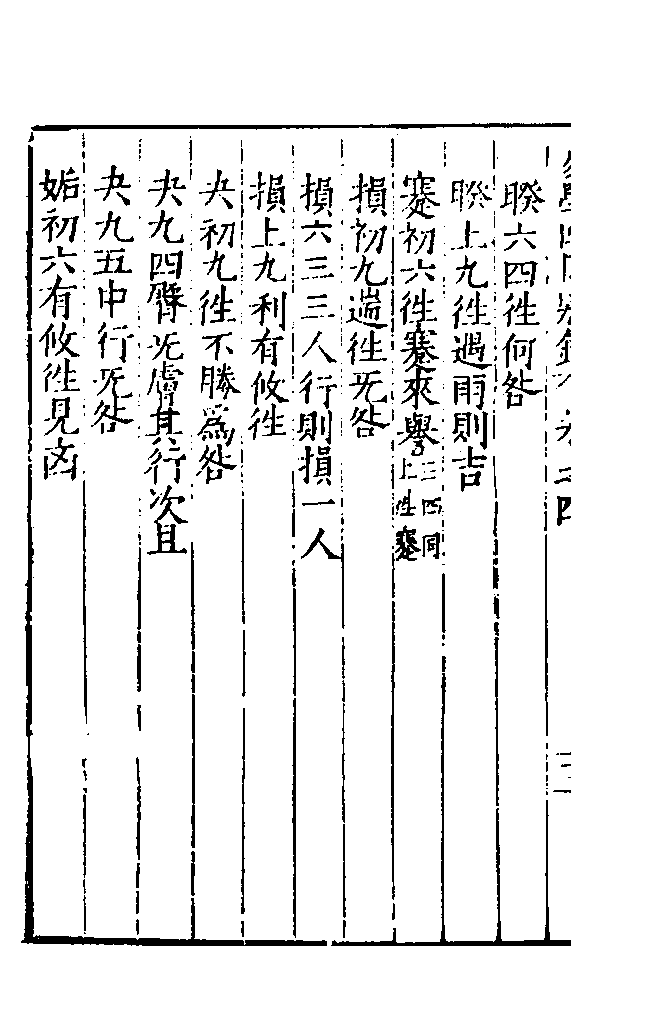 睽六四徃何咎
睽上九徃遇雨則吉
蹇初六徃蹇來譽三四同上徃蹇
損初九遄徃无咎
損六三三人行則損一人
損上九利有攸徃
夬初九徃不勝爲咎
夬九四臀无膚其行次且
夬九五中行无咎
姤初六有攸徃見凶